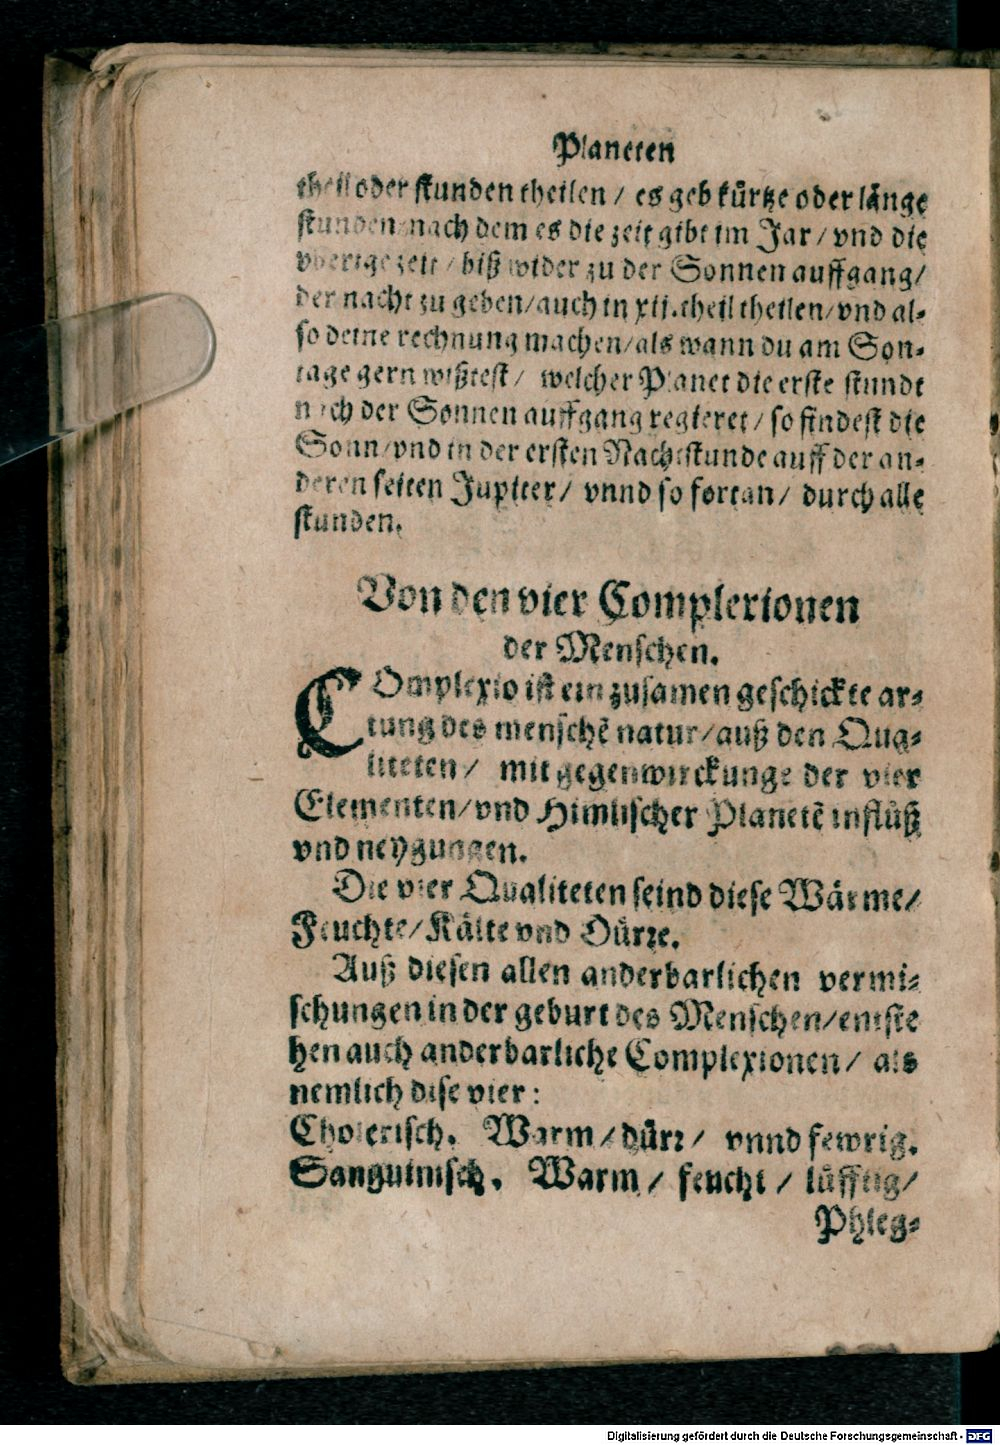 Planeten
theil oder stunden theilen / es geb kürtze oder länge
stunden nach dem es die zeit gibt im Jar / vnd die
vberige zeit / biß wider zu der Sonnen auffgang /
der nacht zu geben / auch in xij. theil theilen / vnd al-
so deine rechnung machen / als wann du am Son-
tage gern wißtest / welcher Planet die erste stundt
nach der Sonnen auffgang regieret / so findest die
Sonn / vnd in der ersten Nachtstunde auff der an-
deren seiten Jupiter / vnnd so fortan / durch alle
stunden.
Von den vier Complexionen
der Menschen.
COmplexio ist ein zusamen geschickte ar-
tung des menschẽ natur / auß den Qua-
liteten / mit gegenwirckunge der vier
Elementen / vnd Himlischer Planetẽ influß
vnd neygungen.
Die vier Qualiteten seind diese Wärme /
Feuchte / Kälte vnd Dürre.
Auß diesen allen anderbarlichen vermi-
schungen in der geburt des Menschen / entste
hen auch anderbarliche Complexionen / als
nemlich dise vier:
Cholerisch. Warm / dürr / vnnd fewrig.
Sanguinisch. Warm / feucht / lüfftig /
Phleg-
Digitalisierung gefördert durch die Deutsche Forschungsgemeinschaft - DFG